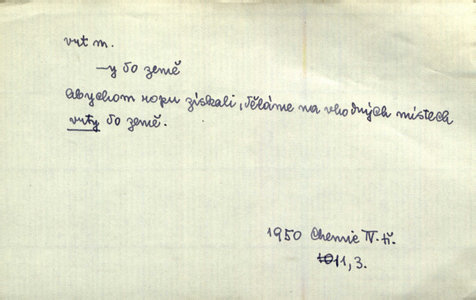 vrt m.
—y do země
Abychom ropu získali, děláme na vhodných místech
vrty do země.
1950 Chemie IV. tř.
11, 3.